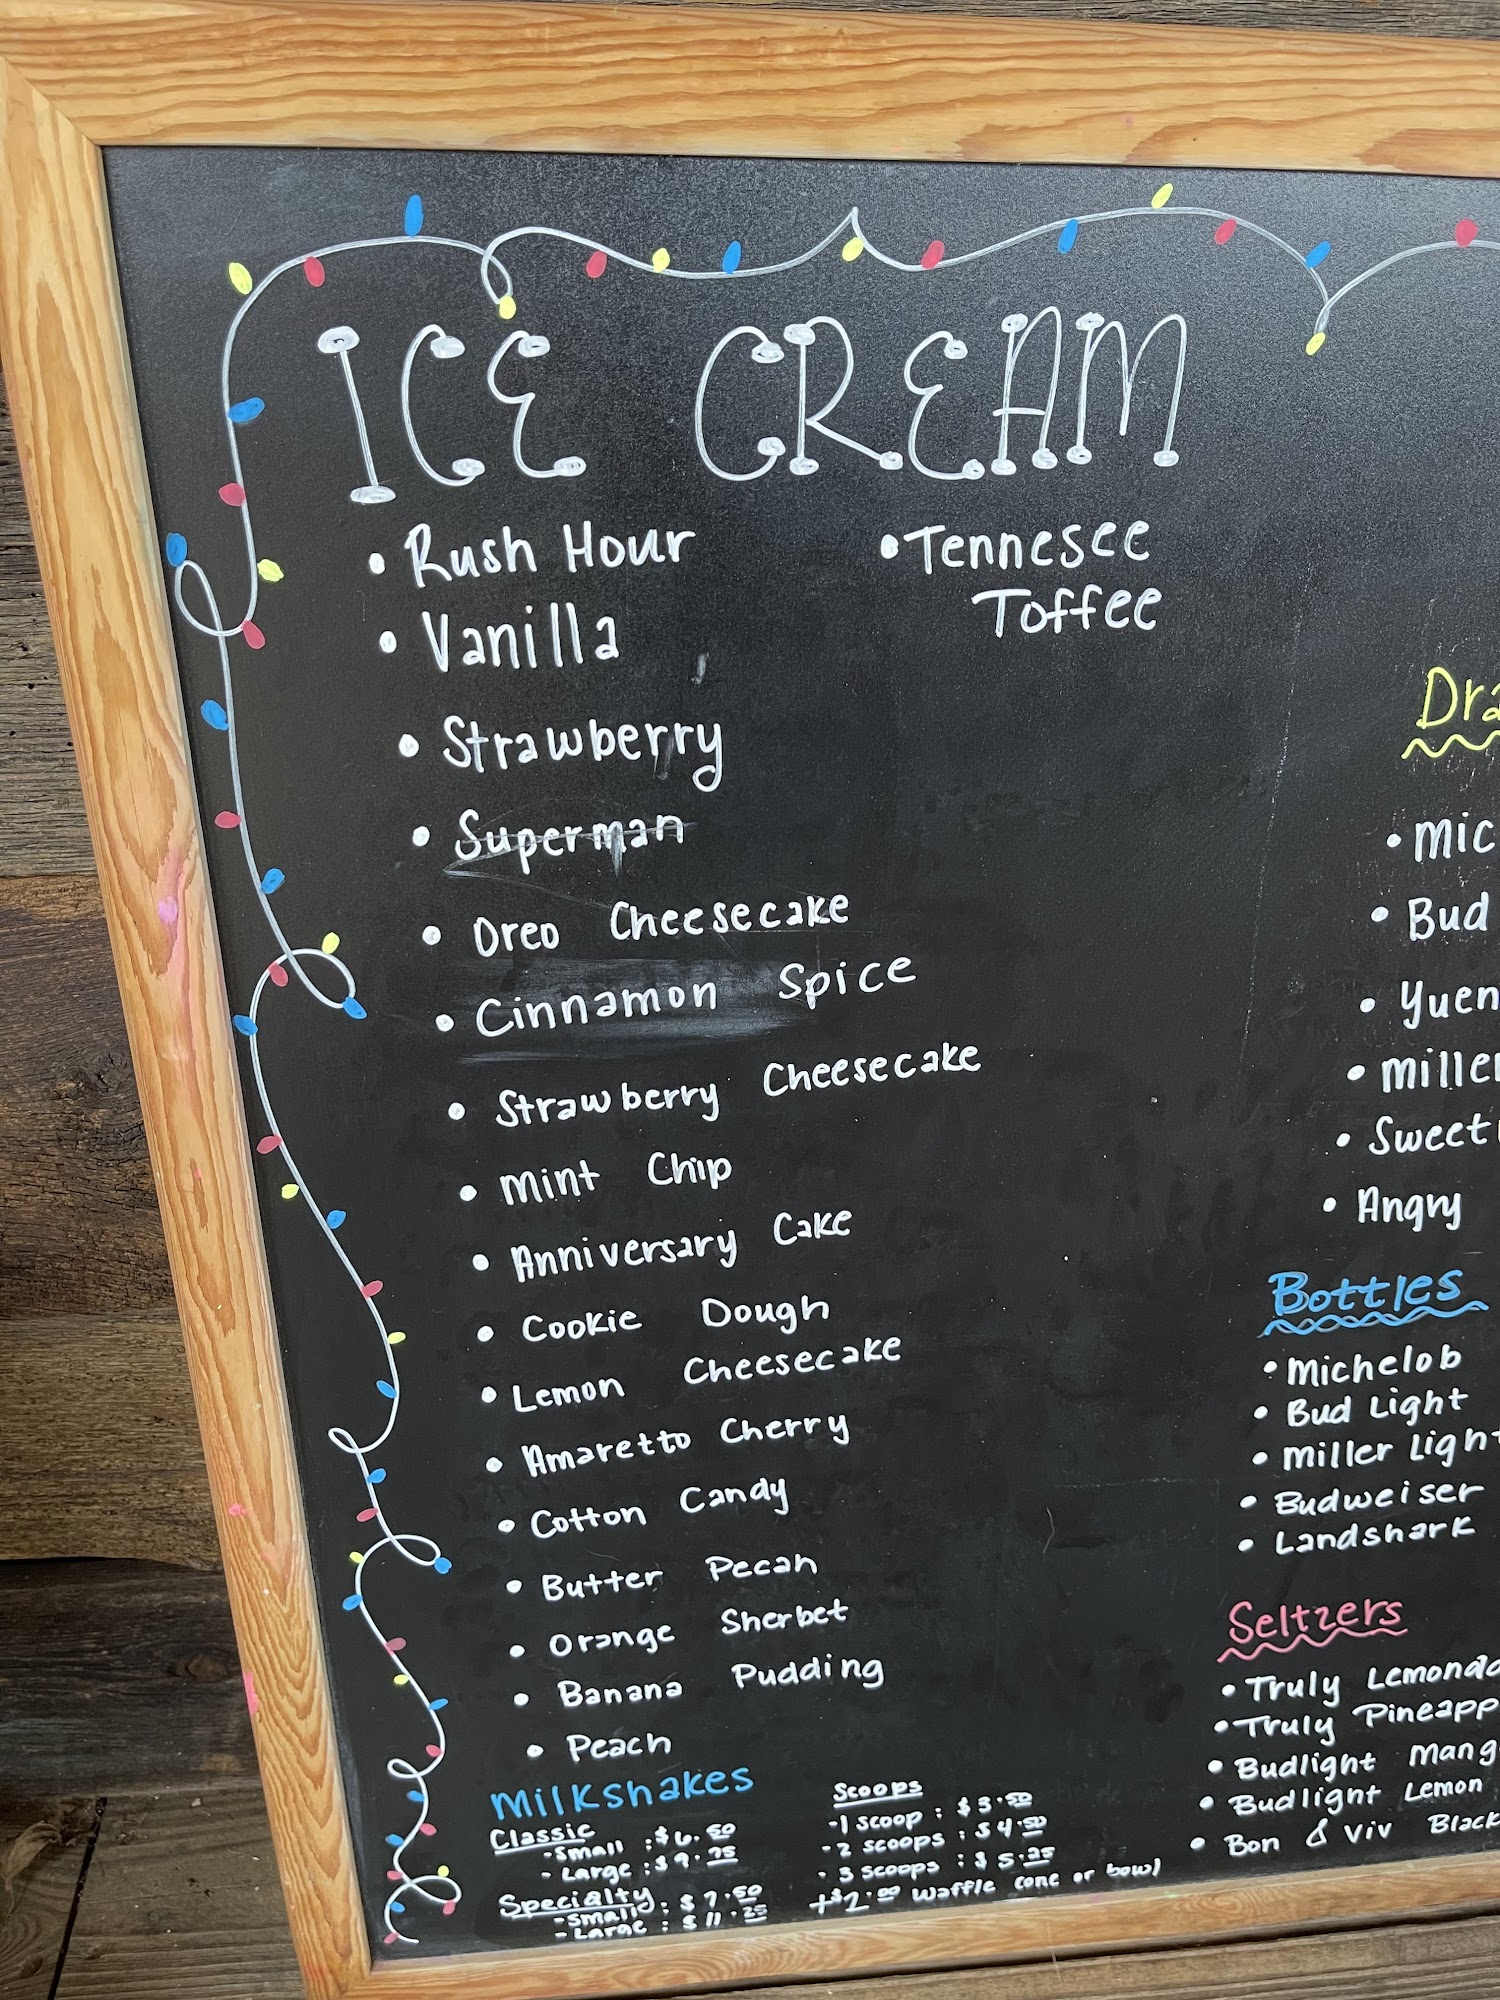 ICE CREAM
• Rush Hour
• Vanilla
• Strawberry
• Superman
• Oreo Cheesecake
• Cinnamon Spice
• Strawberry Cheesecake
• Mint Chip
• Anniversary Cake
• Cookie Dough
• Lemon Cheesecake
• Amaretto Cherry
• Cotton Candy
• Butter Pecan
• Orange Sherbet
• Banana Pudding
• Peach
• Tennesee
Toffee
Milkshakes
Classic
- Small : $6.50
- Large : $9.75
Specialty
- Small : $7.50
- Large : $11.25
Scoops
- 1 scoop : $3.50
- 2 scoops : $4.50
- 3 scoops : $5.25
+$2.00 Waffle cone or bowl
Dra
• Mic
• Bud
• Yuen
• Miller
• Sweet
• Angry
Bottles
• Michelob
• Bud Light
• Miller Light
• Budweiser
• Landshark
Seltzers
• Truly Lemonad
• Truly Pineapp
• Budlight Mang
• Budlight Lemon
• Bon & Viv Black